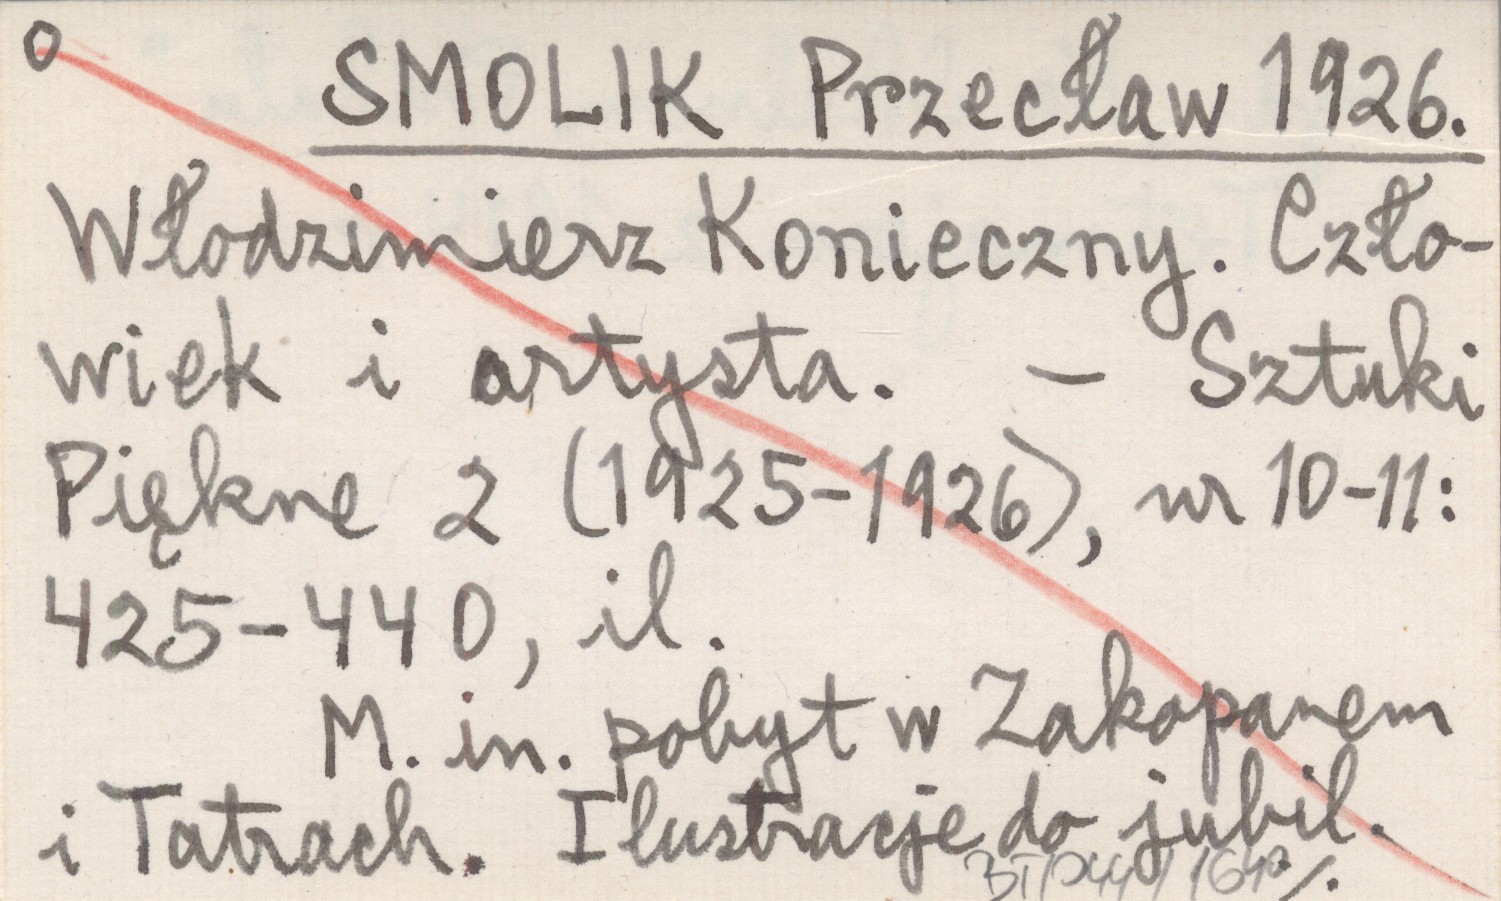 O
SMOLIK Przecław 1926.
Włodzimierz Konieczny. Czło-
wiek i artysta. – Sztuki
Piękne 2 (1925-1926), nr 10-11:
425-440, il.
M. in. pobyt w Zakopanem
i Tatrach. Ilustracje do jubil.
./.